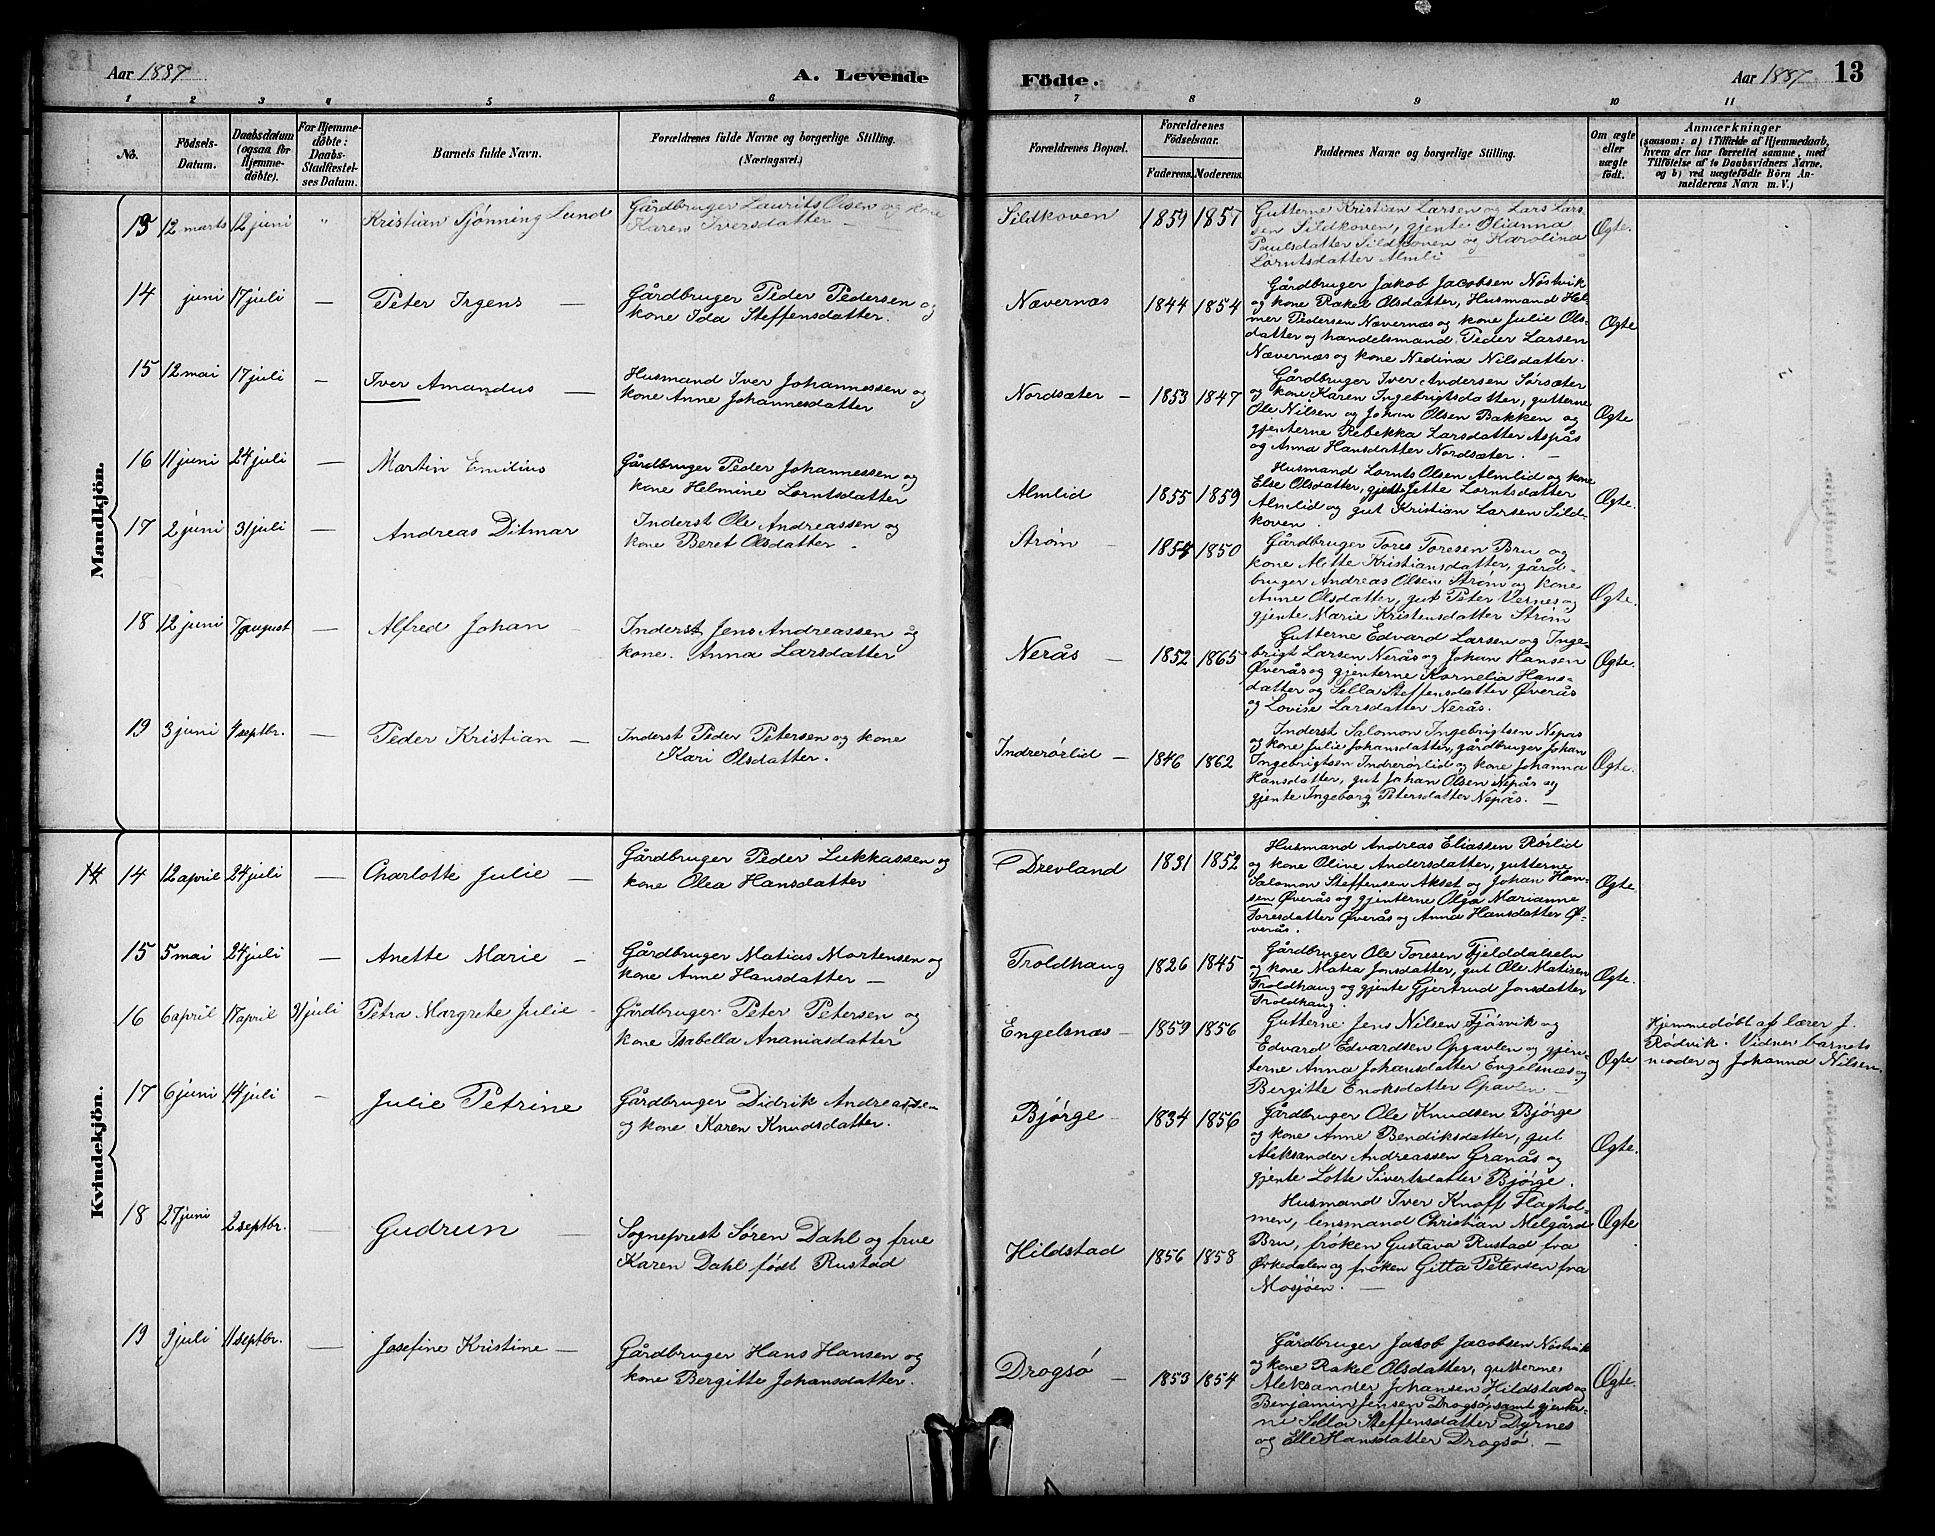 Aar 1887. A. Levende Födte. Aar 1887 13
1 2 3 4 5 6 7 8 9 10 11
No. Födsels-Datum. Daabsdatum (ogsaa for Hjemmedöbte). For Hjemmedöbte: Daabs-Stadfæstelses Datum. Barnets fulde Navn. Forældrenes fulde Navne og borgerlige Stilling. (Næringsvei.) Forældrenes Bopæl. Forældrenes Födselsaar. Faderens. Moderens. Faddernes Navne og borgerlige Stilling. Om ægte eller uægte födt. Anmærkninger
(saasom: a) i Tilfælde af Hjemmedaab, hvem der har forrettet samme, med Tilföielse af to Daabsvidners Navne, og b) ved uægtefödte Börn Anmelderens Navn m. V.)
Mandkjön.
13 12 marts 12 juni " Kristian Sjønning Lund
Gårdbruger Laurits Olsen og kone
Karen Iversdatter —
Sildkoven 1859 1857
Gutterne Kristian Larsen og Lars Lar-
sen Sildkoven, gjente Olianna
Paulsdatter Sildkoven og Karolina
Lorntsdatter Almli
Ægte.
14 juni 17 juli — Peter Irgens —
Gårdbruger Peder Pedersen og
kone Ida Steffensdatter.
Nævernæs 1844 1854
Gårdbruger Jakob Jacobsen Nöstvik
og kone Rakel Olsdatter, Husmand Hel-
mer Pedersen Nævernæs og kone Julie Ols-
datter og handelsmand Peder Larsen
Nævernæs og kone Nedina Nilsdatter.
Ægte
15 12 mai 17 juli — Iver Amandus —
Husmand Iver Johannessen og
kone Anne Johannesdatter
Nordsæter — 1853 1847
Gårdbruger Iver Andersen Sörsæter
og kone Karen Ingebrigtsdatter, gutterne
Ole Nilsen og Johan Olsen Bakken og
gjenterne Rebekka Larsdatter Aspås
og Anna Hansdatter Nordsæter. —
Ægte
16 11 juni 24 juli — Martin Emilius
Gårdbruger Peder Johannessen og
kone Helmine Lorntsdatter
Almlid 1855 1859
Husmand Lornts Olsen Almlid og kone
Else Olsdatter, gjente Jette Lorntsdatter
Almlid og gut Kristian Larsen Sild-
koven.
Ægte.
17 2 juni 31 juli — Andreas Ditmar
Inderst Ole Andreassen og
kone Beret Olsdatter.
Strøm — 1854 1850
Gårdbruger Tores Toresen Bru og
kone Mette Kristiansdatter, gård-
bruger Andreas Olsen Strøm og kone
Anne Olsdatter, gut Peter Vernes og
gjente Marie Kristensdatter Strøm
Ægte.
18 12 juni 7 august — Alfred Johan —
Inderst Jens Andreassen og
kone. Anna Larsdatter
Nerås — 1852 1865
Gutterne Edvard Larsen og Inge-
brigt Larsen Nerås og Johan Hansen
Øverås og gjenterne Kornelia Hans-
datter og Sella Steffensdatter Øverås
og Lovise Larsdatter Nerås.
Ægte.
19 3 juni 4 septbr. — Peder Kristian —
Inderst Peder Petersen og kone
Kari Olsdatter.
Indrerörlid — 1846 1862
Inderst Salomon Ingebrigtsen Nepås
og kone Julie Johansdatter, gårdbruger Johan
Ingebrigtsen Indrerörlid og kone Johanna
Hansdatter, gut Johan Olsen Nepås og
gjente Ingeborg Petersdatter Nepås. —
Ægte.
Kvindekjön.
14 14 12 april 24 juli — Charlotte Julie —
Gårdbruger Peder Lukkassen og
kone Olea Hansdatter
Drevland 1831 1852
Husmand Andreas Eliassen Rörlid
og kone Oline Andersdatter, gutterne
Salomon Steffensen Akset og Johan Han-
sen Øverås og gjenterne Olga Marianne
Toresdatter Øverås og Anna Hansdatter Ø-
verås.
Ægte.
15 5 mai 24 juli — Anette Marie —
Gårdbruger Matias Mortensen og
kone Anne Hansdatter —
Troldhaug 1826 1845
Gårdbruger Ole Toresen Fjelddalseln
og kone Matea Jonsdatter, gut Ole Matisen
Troldhaug og gjente Gjertrud Jonsdatter
Troldhaug.
Ægte.
16 6 april 17 april 31 juli Petra Margrete Julie —
Gårdbruger Peter Petersen og
kone Isabella Ananiasdatter
Engelsnæs — 1859 1856
Gutterne Jens Nilsen Fjösvik og
Edvard Edvardsen Opgavlen og gjen-
terne Anna Johansdatter Engelsnæs og
Bergitte Enoksdatter Opavlen —
Ægte
Hjemmedöbt af lærer J.
Rödvik. Vidner barnets
moder og Johanna Nilsen.
17 6 juni 14 juli — Julie Petrine
Gårdbruger Didrik Andreassen
og kone Karen Knudsdatter.
Bjørge — 1834 1856
Gårdbruger Ole Knudsen Bjørge
og kone Anne Bendiksdatter, gut
Aleksander Andreassen Granås og
gjente Lotte Sivertsdatter Bjørge.
Ægte.
18 27 juni 2 septbr. — Gudrun —
Sogneprest Søren Dahl og frue
Karen Dahl født Rustad
Hildstad 1856 1858
Husmand Iver Knoff Flaghol-
men, lensmand Christian Melgård
Bru, frøken Gustava Rustad fra
Ørkedalen og frøken Gitta Petersen fra
Mosjøen. —
Ægte
19 9 juli 11 septbr. — Josefine Kristine —
Gårdbruger Hans Hansen og
kone Bergitte Johansdatter.
Drogsø — 1853 1854
Gårdbruger Jacob Jacobsen Nöstvik
og kone Rakel Olsdatter, gutterne
Aleksander Johansen Hildstad og
Benjamin Jensen Drogsø, samt gjenter-
ne Sella Steffensdatter Dyrnes
og Elle Hansdatter Drogsø. —
Ægte.